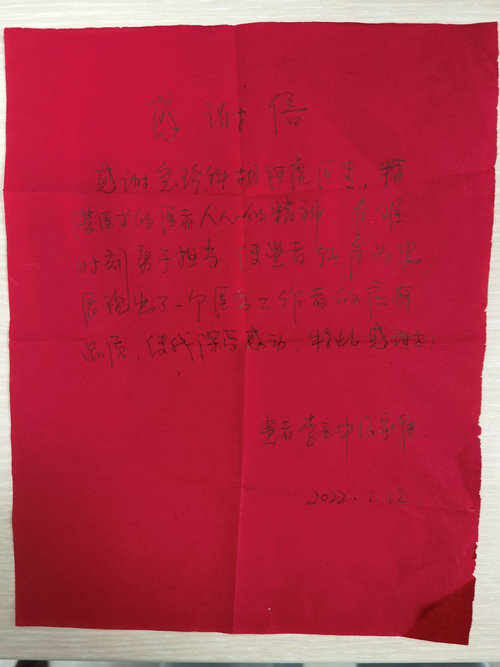 感谢信
感谢急诊科胡 医生,精
湛医术的医者人心的精神,危难
时刻勇于担当,使患者转危为安,
展现出了一个医务工作者的
品质,使我深受感动,特此感谢!
患者李 中
2022.1.12